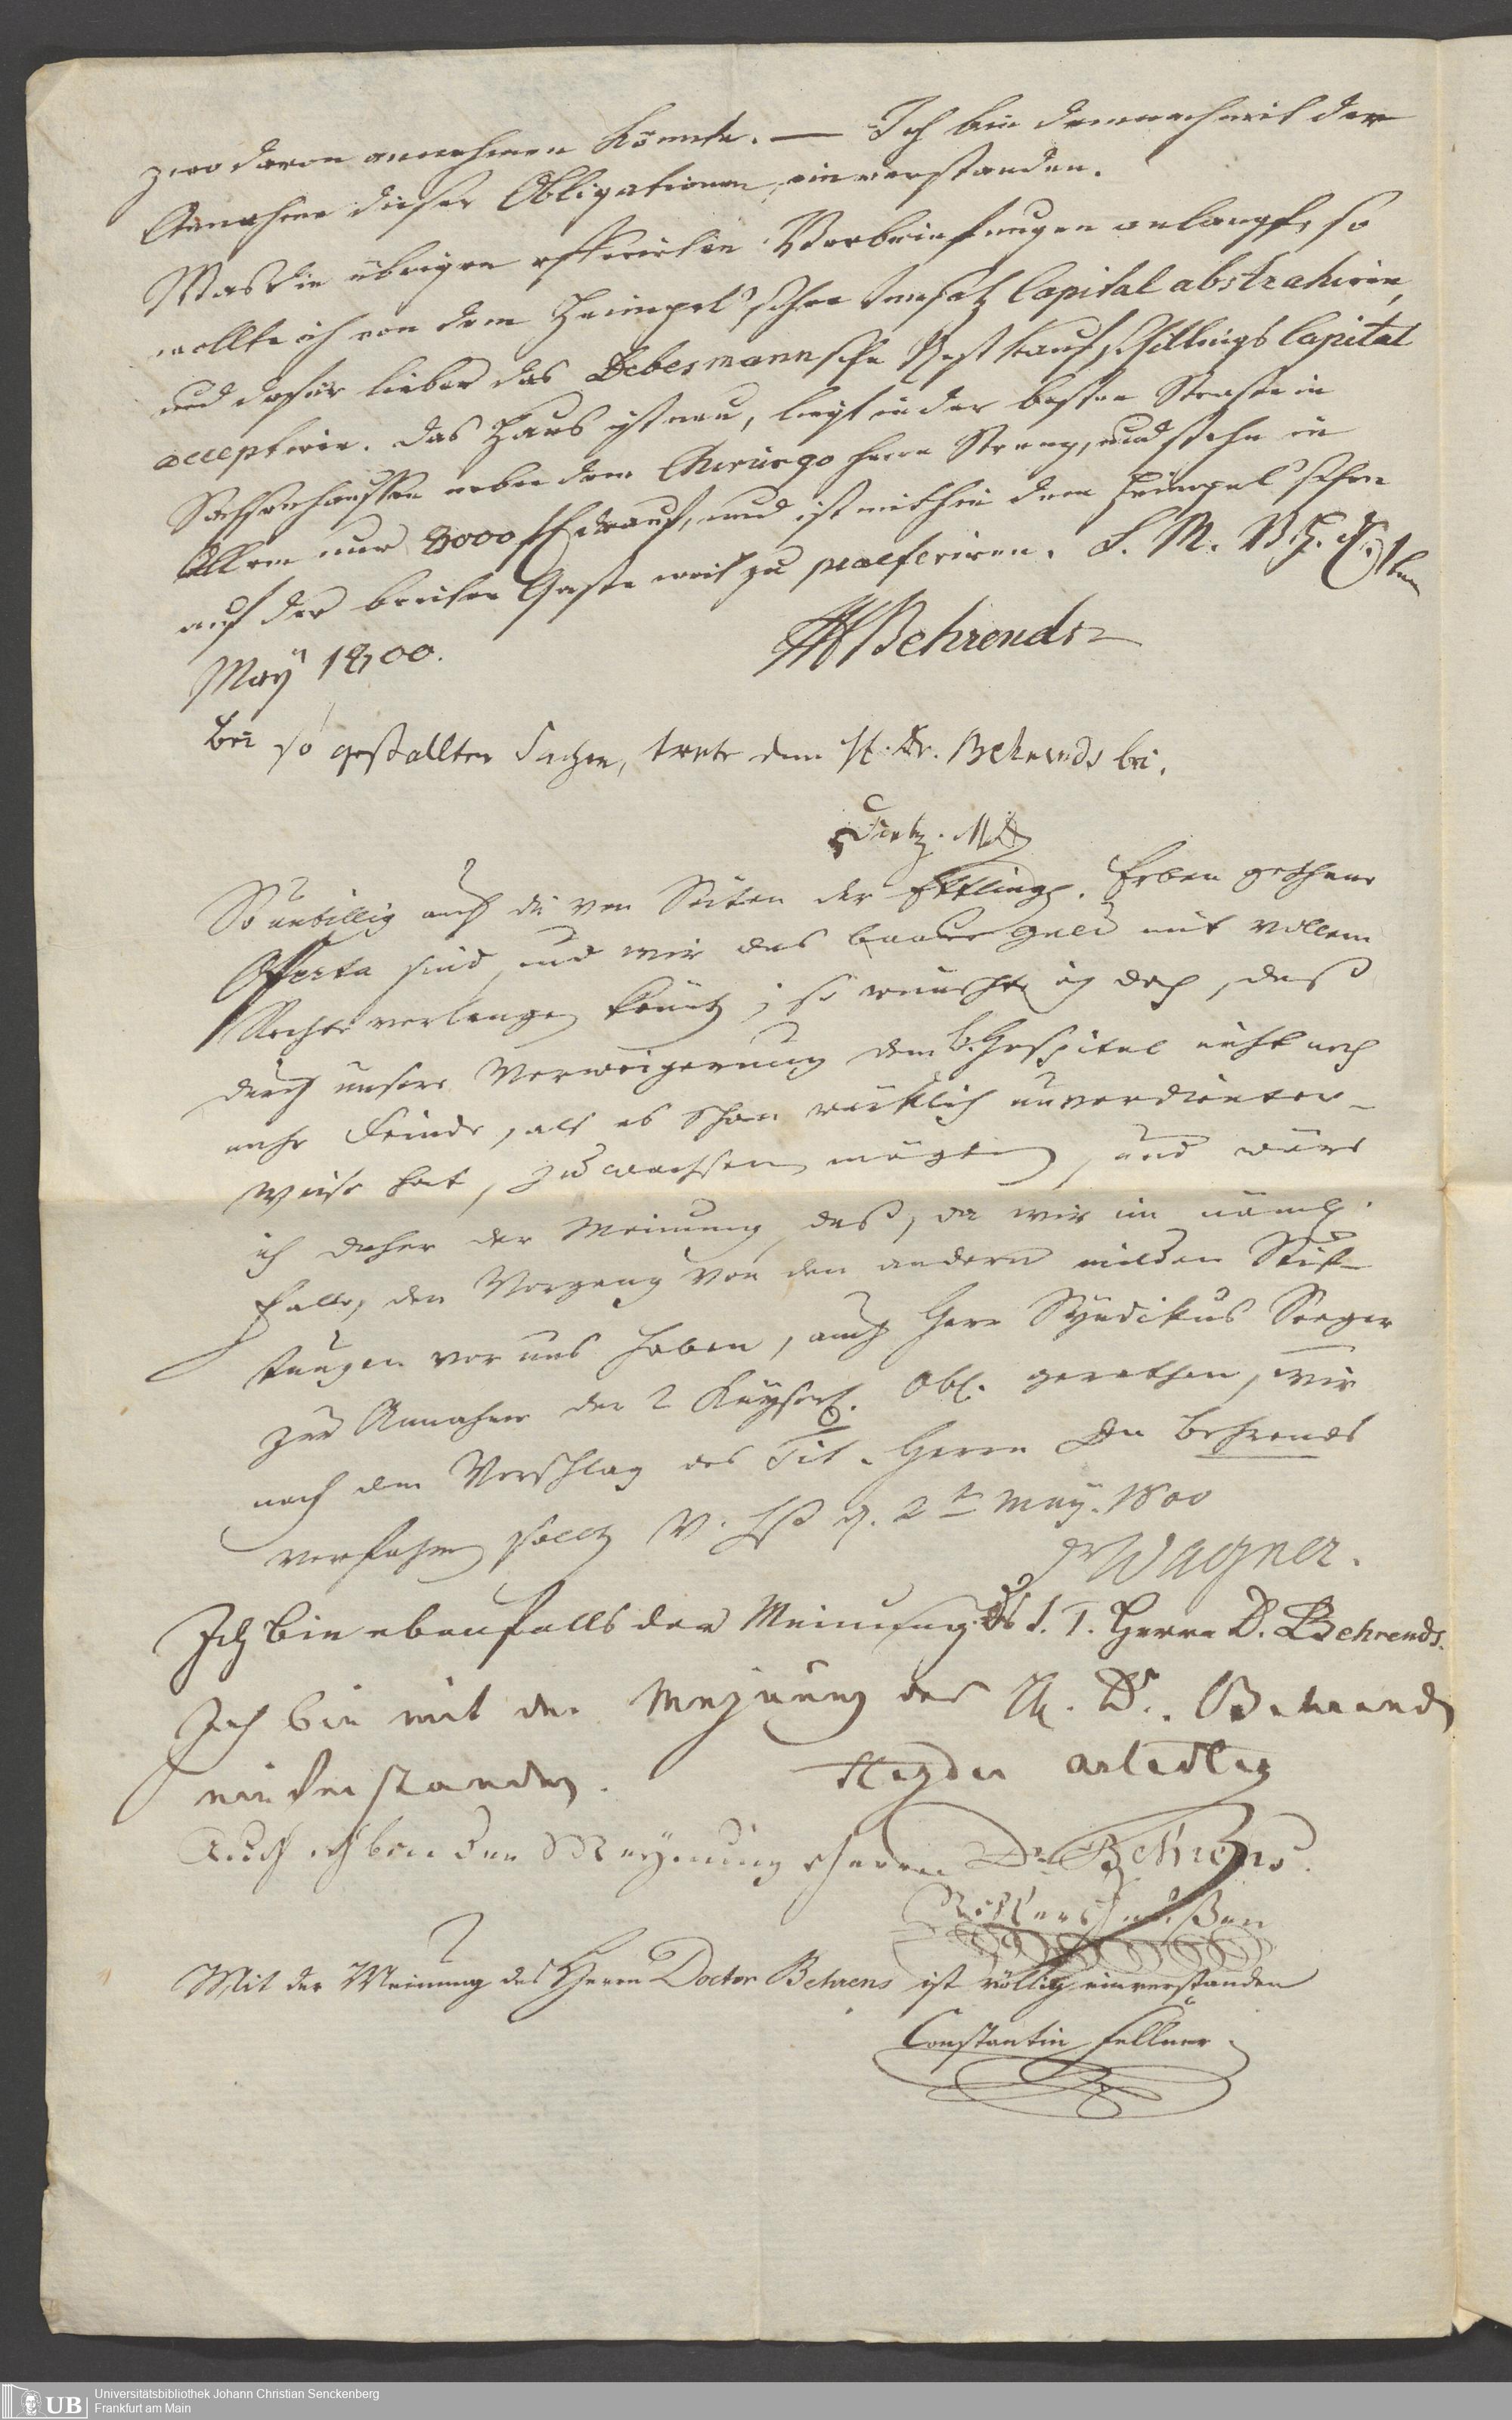 zwo davon annehmen könnte. — Ich bin demnach mit der
Annahme dieser Obligationen einverstanden.
Was die übrigen offerirten Verbriefungen anlangt, so
wollte ich von dem Heimpel'schen Insatz Capital abstrahiren,
und dafür lieber das Debesmannsche Restkaufschillings Capital
acceptiren. das Haus ist neu, liegt in der besten Strasse in
Sachsenhaussen neben dem Chirurgo Herrn Streng, und stehn in
Allem nur 3000 f darauf, und ist mithin dem Heimpel'schen
auf der breiten Gasse weit zu praeferiren. S. M.
May 1800. Behrends
Bei so gestallten Sachen, trete dem H. Dr. Behrends bei.
So unbillig auch die von Seiten der Ettling. Erben gethane
Offerta sind, und wir das baare Geld mit vollem
Rechte verlangen könten; so wünschte ich doch, daß
durch unsere Verweigerung dem b. Hospital nicht noch
mehr Feinde, als es schon würklich unverdienter-
weise hat, zuwachsen mögten, und wäre
ich daher der Meinung, daß, da wir im näml.
Falle, den Vorgang von den andern milden Stif-
tungen vor uns haben, auch Herr Syndikus Seeger
zur Annahme der 2 Kayserl. Obl. gerathen, wir
nach dem Vorschlag des Tit. Herrn Dr Behrends
verfahren sollten d. 2t May. 1800
Wagner.
Ich bin ebenfalls der Meinung des S. T. Herrn D. Behrends.
Ich bin mit der Meynung des H. Dr. Behrends
einverstanden. Heyder
Auch ich bin der Meynung Herrn Dr Behrens.
Mit der Meinung des Herrn Doctor Behrens ist völlig einverstanden
Constantin Fellner
UB Universitätsbibliothek Johann Christian Senckenberg
Frankfurt am Main